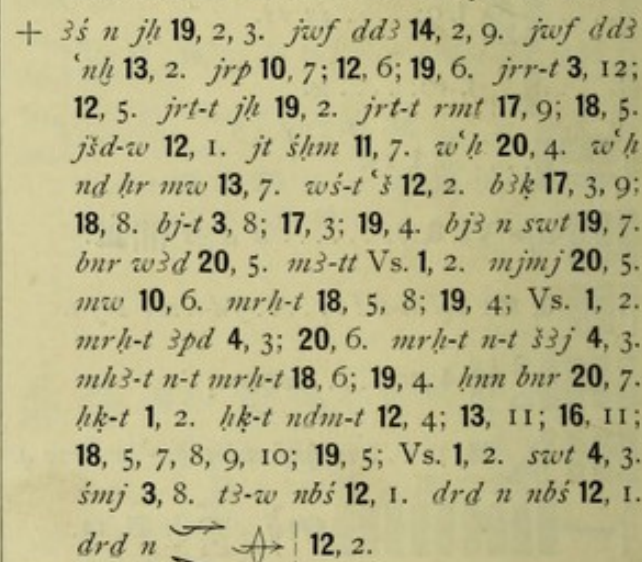 + ꜣś n jḥ 19, 2, 3. jwf ddꜣ 14, 2, 9. jwf ddꜣ
ꜥnḫ 13, 2. jrp 10, 7; 12, 6; 19, 6. jrr-t 3, 12;
12, 5. jrt-t jḥ 19, 2. jrt-t rmt 17, 9; 18, 5.
jšd-w 12, 1. jt śḫm 11, 7. wꜥḥ 20, 4. wꜥḥ
nd ḥr mw 13, 7. wś-t ꜥš 12, 2. bꜣḳ 17, 3, 9;
18, 8. bj-t 3, 8; 17, 3; 19, 4. bjꜣ n swt 19, 7.
bnr wꜣd 20, 5. mꜣ-tt Vs. 1, 2. mjmj 20, 5.
mw 10, 6. mrḥ-t 18, 5, 8; 19, 4; Vs. 1, 2.
mrḥ-t ꜣpd 4, 3; 20, 6. mrḥ-t n-t šꜣj 4, 3.
mhꜣ-t n-t mrḥ-t 18, 6; 19, 4. ḥnn bnr 20, 7.
ḥḳ-t 1, 2. ḥḳ-t ndm-t 12, 4; 13, 11; 16, 11;
18, 5, 7, 8, 9, 10; 19, 5; Vs. 1, 2. swt 4, 3.
śmj 3, 8. tꜣ-w nbś 12, 1. drd n nbś 12, 1.
drd n 12, 2.